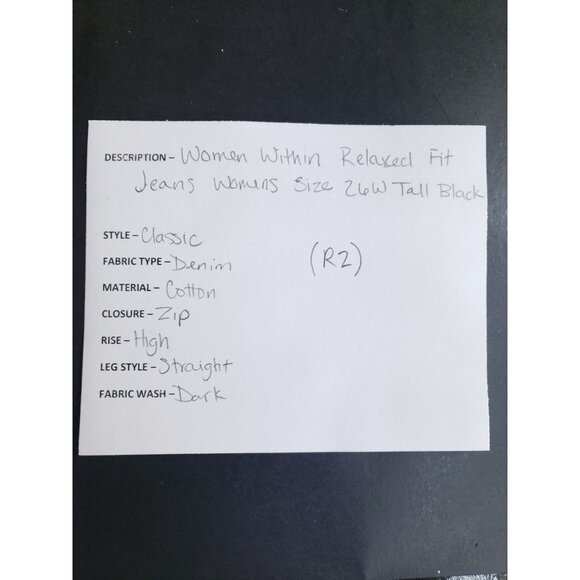 DESCRIPTION - Women Within Relaxed Fit
Jeans Womens Size 26W Tall Black
STYLE - Classic
FABRIC TYPE - Denim
(R2)
MATERIAL - Cotton
CLOSURE - Zip
RISE - High
LEG STYLE - Straight
FABRIC WASH - Dark